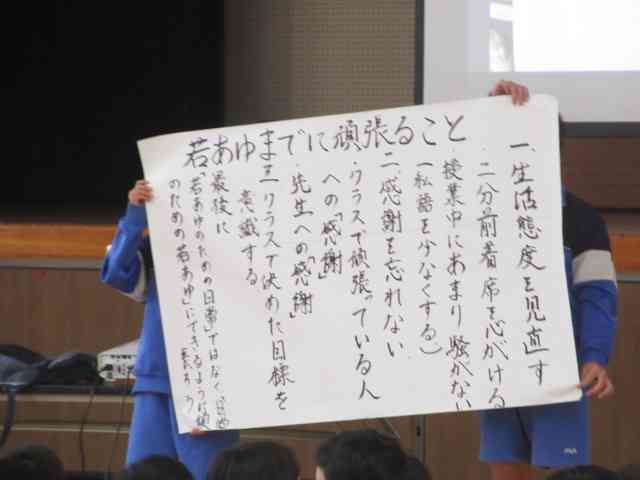 若あゆまでに頑張ること
一、生活態度を見直す
・二分前着席を心がける
・授業中にあまり騒がない
(私語を少なくする)
二、感謝を忘れない
・クラスで頑張っている人
への「感謝」
・先生への「感謝」
三 クラスで決めた目標を
意識する
最後に
「若あゆのための日常」ではなく「日常
のための若あゆ」にできるように頑
張ろう